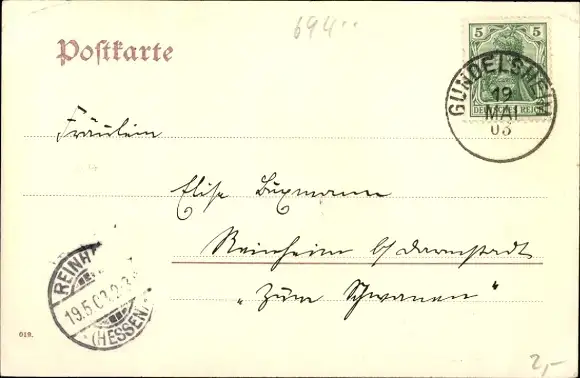 694
Postkarte
5 5
DEUTSCHES REICH
GUNDELSHEIM
19
MAI
03
Fräulein
Elise Buxmann
Reinheim b/ Darmstadt
„Zum Schwanen"
REINH
19.5.03.
(HESSEN)
019.
2,-